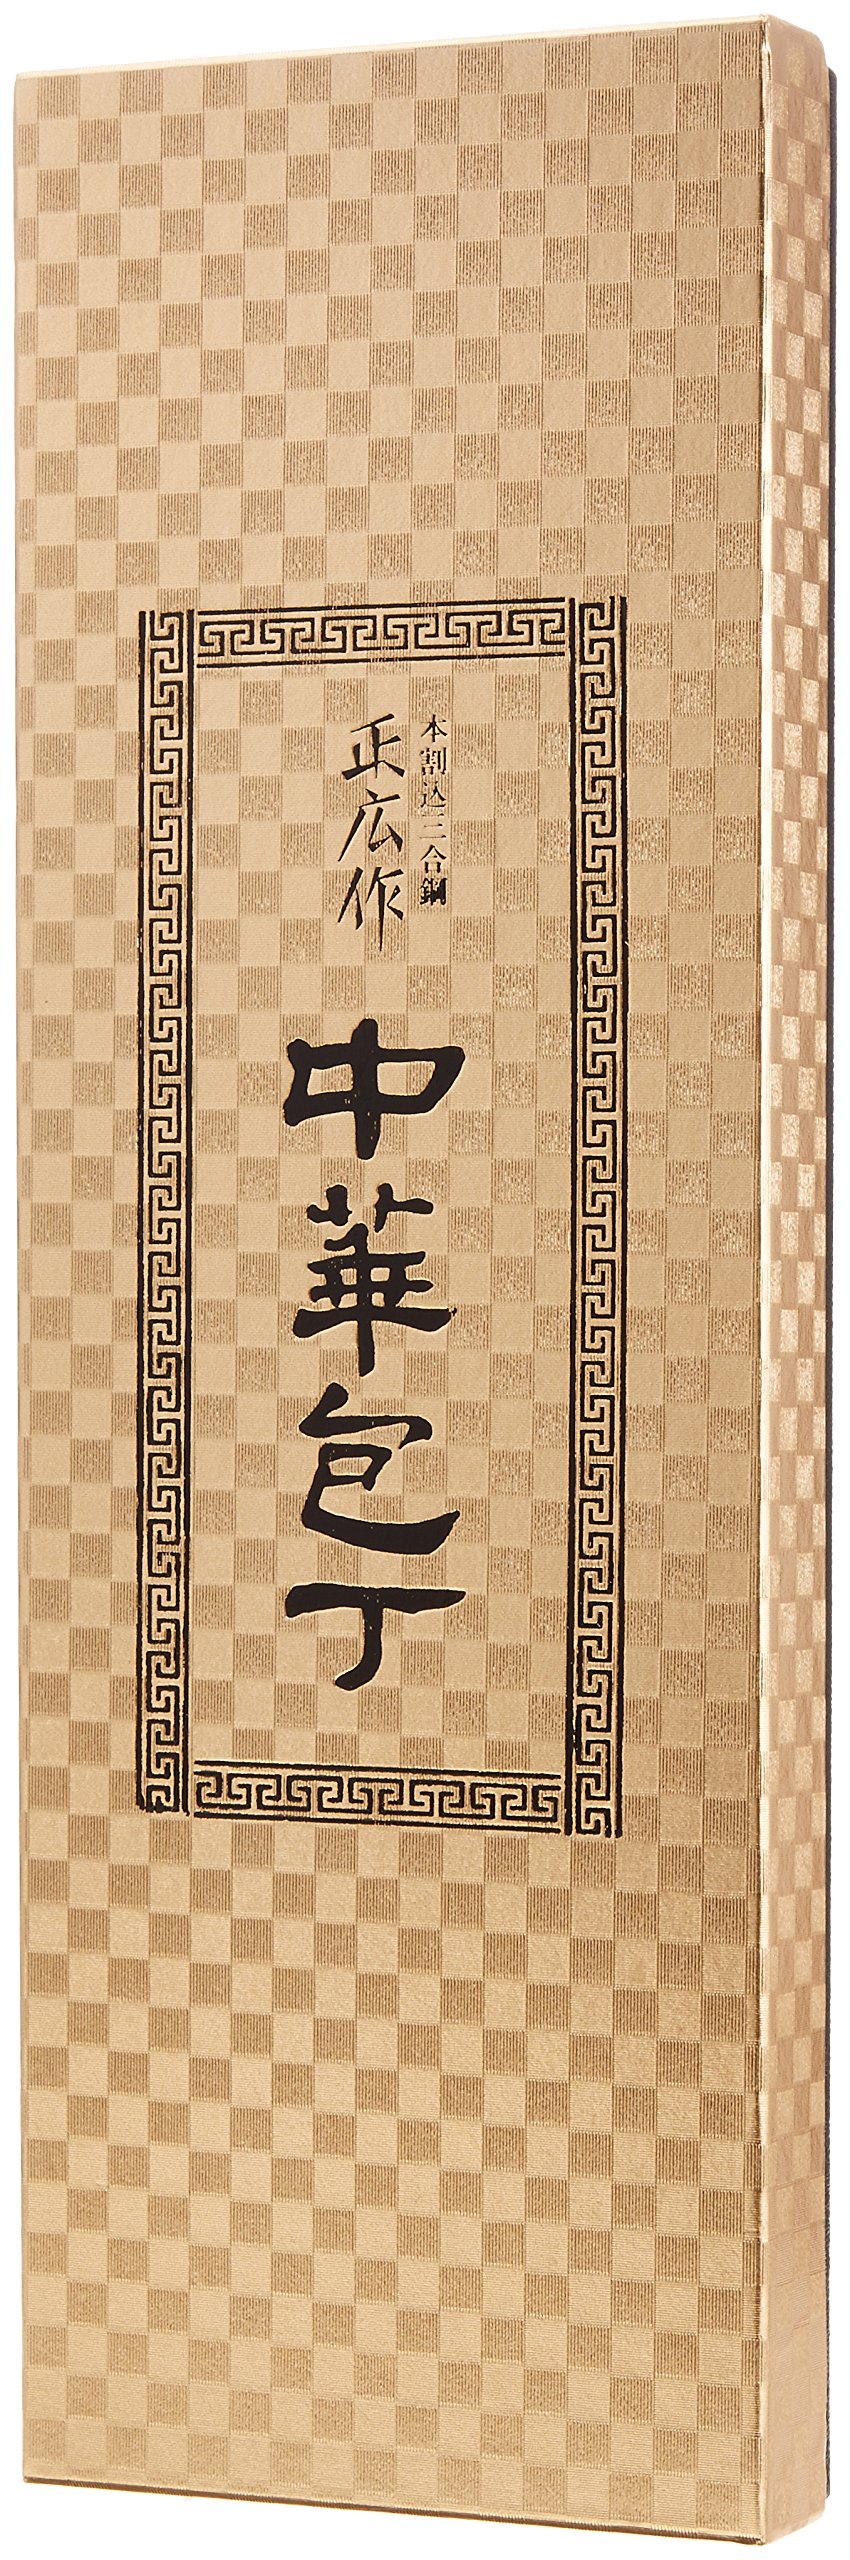 本割込三合鋼
正広作
中華包丁